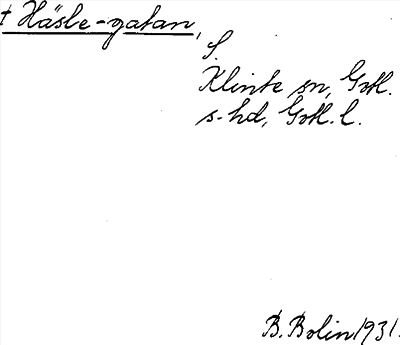 † Häsle-gatan,
S.
Klinte sn, Gotl.
s. hd, Gotl. l.
B. Bolin 1931.